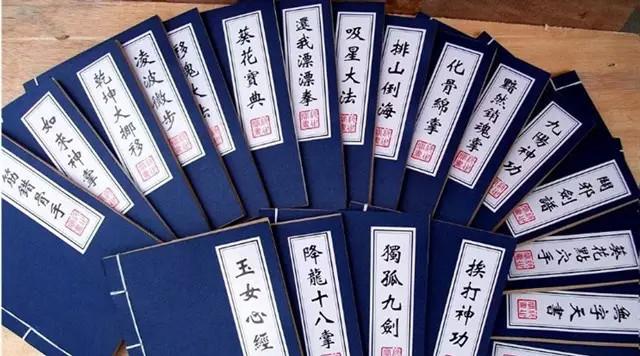 筋錯骨手
如來神掌
乾坤大挪移
凌波微步
移魂大法
葵花寶典
還我漂漂拳
吸星大法
排山倒海
化骨綿掌
黯然銷魂掌
九陽神功
闢邪劍譜
葵花點穴手
無字天書
玉女心經
降龍十八掌
獨孤九劍
挨打神功